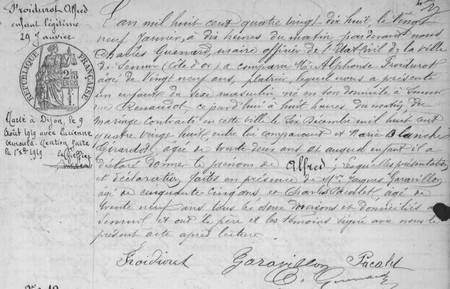 Froidurot Alfred
enfant légitime
29 Janvier
RÉPUBLIQUE FRANÇAISE
Marié à Dijon, le 9
Août 1919 avec Lucienne
Mention faite
le
L'an mil huit cent quatre vingt dix huit, le Vingt
neuf Janvier, à dix heures du matin pardevant nous
Charles maire officier de l'Etat civil de la ville
de Semur (Côte d'or) a comparu Mr Alphonse Froidurot
agé de Vingt neuf ans, platrier, lequel nous a présenté
un enfant de sexe masculin né en son domicile à Semur
rue ce jourd'hui à huit heures du matin du
mariage contracté en cette ville le Six Décembre mil huit cent
quatre vingt huit, entre lui comparant et Marie Blanche
agée de trente deux ans et auquel enfant il a
déclaré donner le prénom de Alfred; Lesquelles présentation
et déclaration faites en présence de Mrs Jacques Garavillon
agé de cinquante cinq ans et Charles agé de
trente neuf ans, tous les deux et domiciliés à
Semur et ont le père et les témoins signé avec nous le
présent acte après lecture.
Froidurot Garavillon